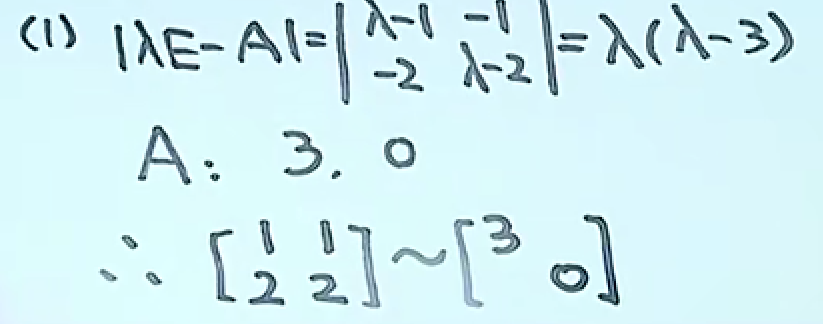 (1) |λE-A|=|λ-1 -1
-2 λ-2|=λ(λ-3)
A: 3. 0
∴ [1 1
2 2]~[3
0]